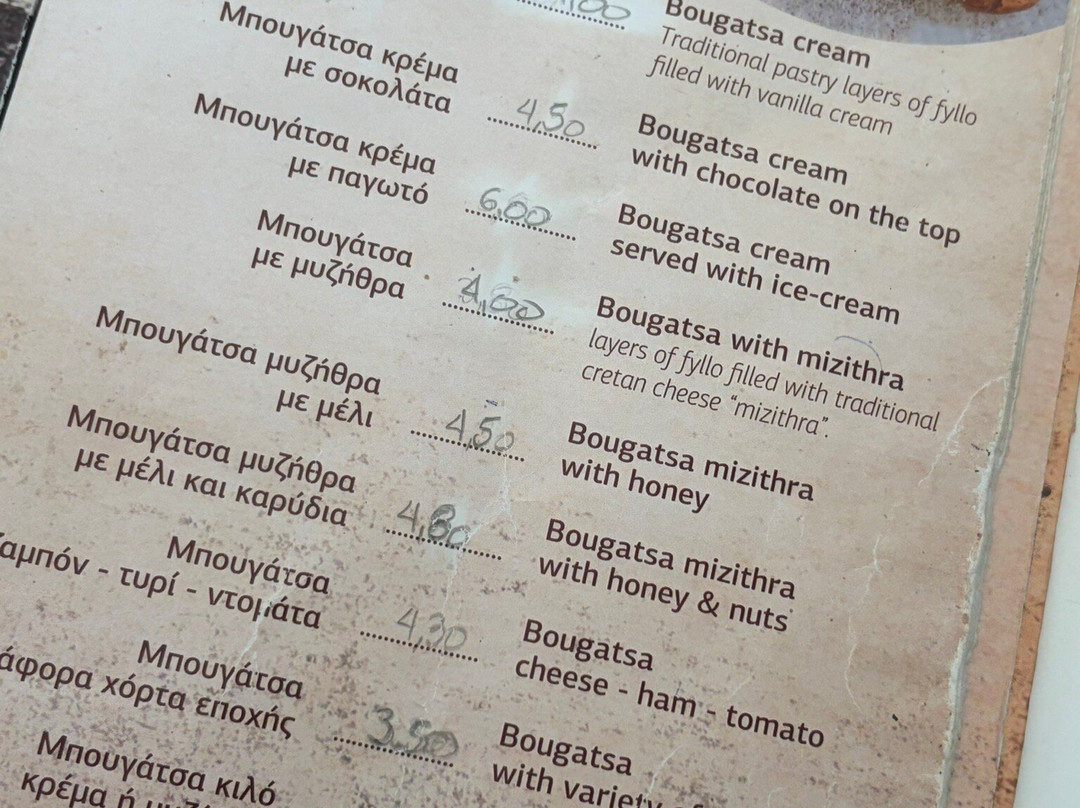 Bougatsa cream
Traditional pastry layers of fyllo
filled with vanilla cream
Μπουγάτσα κρέμα
με σοκολάτα
4,50
Bougatsa cream
with chocolate on the top
Μπουγάτσα κρέμα
με παγωτό
6,00
Bougatsa cream
served with ice-cream
Μπουγάτσα
με μυζήθρα
4,00
Bougatsa with mizithra
layers of fyllo filled with traditional
cretan cheese “mizithra”.
Μπουγάτσα μυζήθρα
με μέλι
4,50
Bougatsa mizithra
with honey
Μπουγάτσα μυζήθρα
με μέλι και καρύδια
Bougatsa mizithra
with honey & nuts
Μπουγάτσα
- τυρί - ντομάτα
4,30
Bougatsa
cheese - ham - tomato
Μπουγάτσα
χόρτα εποχής
3,50
Bougatsa
with variety
Μπουγάτσα κιλό
κρέμα ή